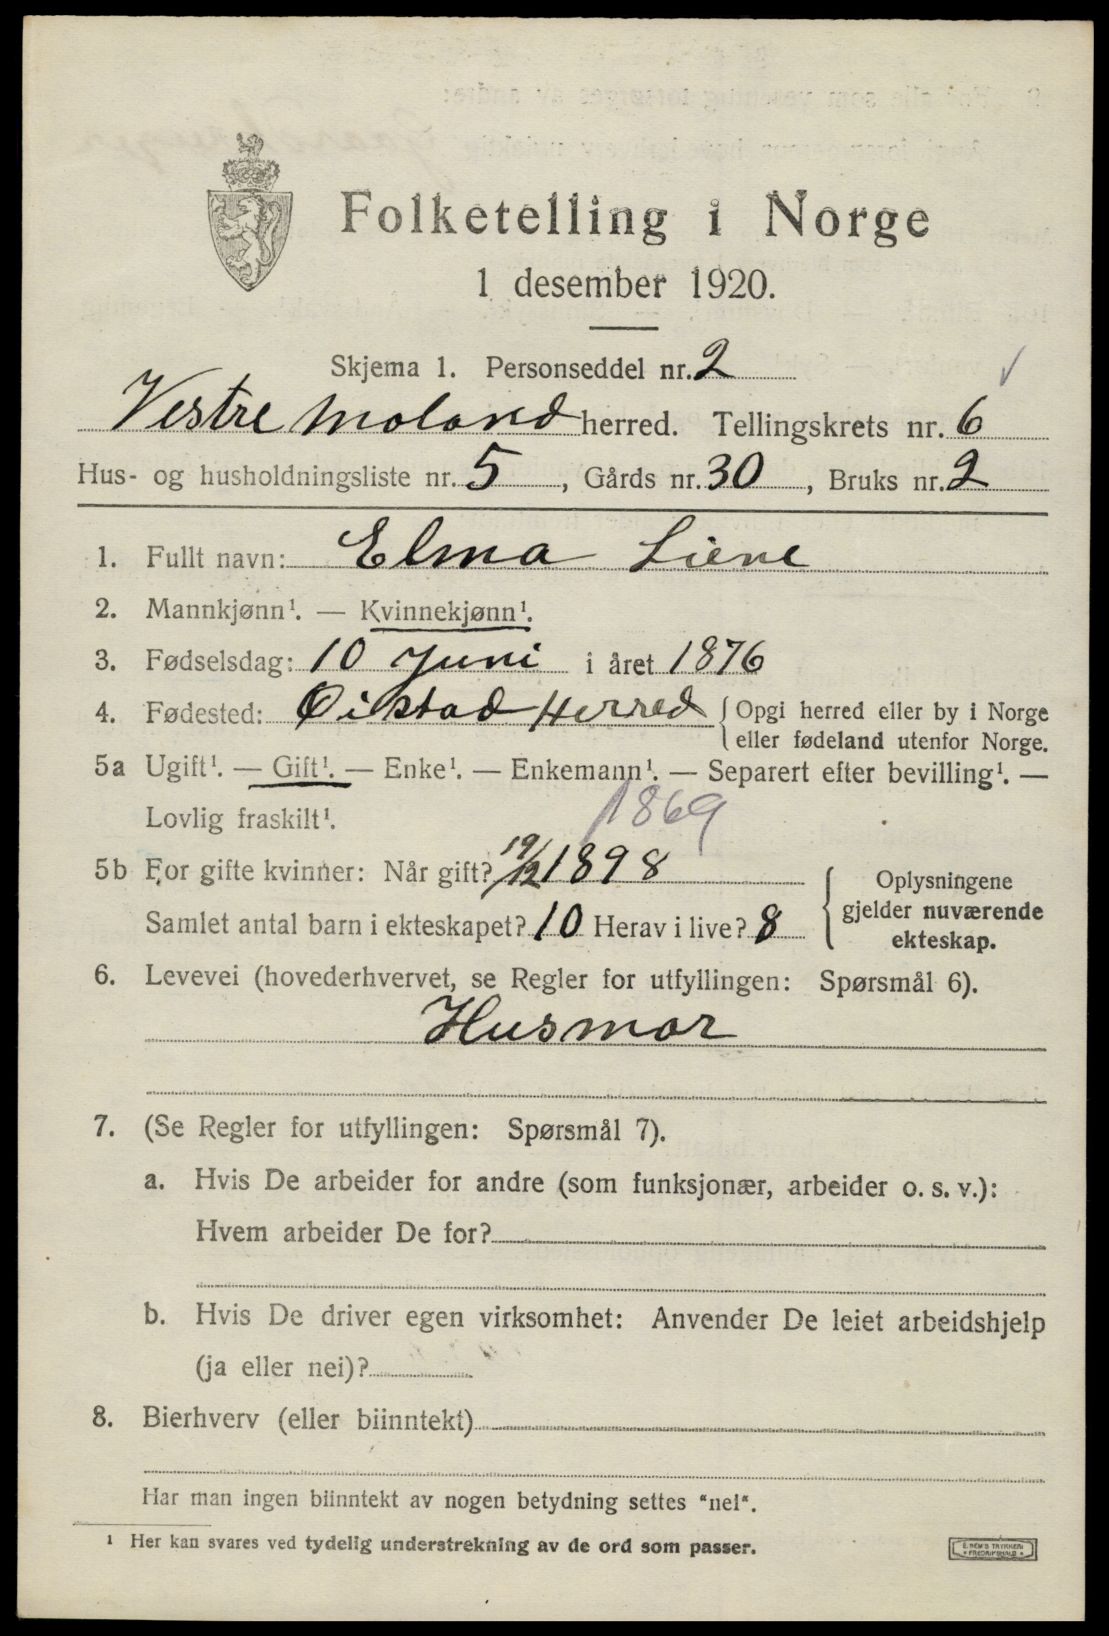 Folketelling i Norge
1 desember 1920.
Skjema 1. Personseddel nr. 2
Vestre Moland herred. Tellingskrets nr. 6
Hus- og husholdningsliste nr. 5, Gårds nr. 30, Bruks nr. 2
1. Fullt navn: Elma Liene
2. Mannkjønn¹. — Kvinnekjønn¹.
3. Fødselsdag: 10 Juni i året 1876
4. Fødested: Øistad Herred { Opgi herred eller by i Norge
eller fødeland utenfor Norge.
5a Ugift¹. — Gift¹. — Enke¹. — Enkemann¹. — Separert efter bevilling¹. —
Lovlig fraskilt¹.
1869
5b For gifte kvinner: Når gift? 19/12 1898
Samlet antal barn i ekteskapet? 10 Herav i live? 8
Oplysningene
gjelder nuværende
ekteskap.
6. Levevei (hovederhvervet, se Regler for utfyllingen: Spørsmål 6).
Husmor
7. (Se Regler for utfyllingen: Spørsmål 7).
a. Hvis De arbeider for andre (som funksjonær, arbeider o. s. v.):
Hvem arbeider De for?
b. Hvis De driver egen virksomhet: Anvender De leiet arbeidshjelp
(ja eller nei)?
8. Bierhverv (eller biinntekt)
Har man ingen biinntekt av nogen betydning settes "nei".
¹ Her kan svares ved tydelig understrekning av de ord som passer.